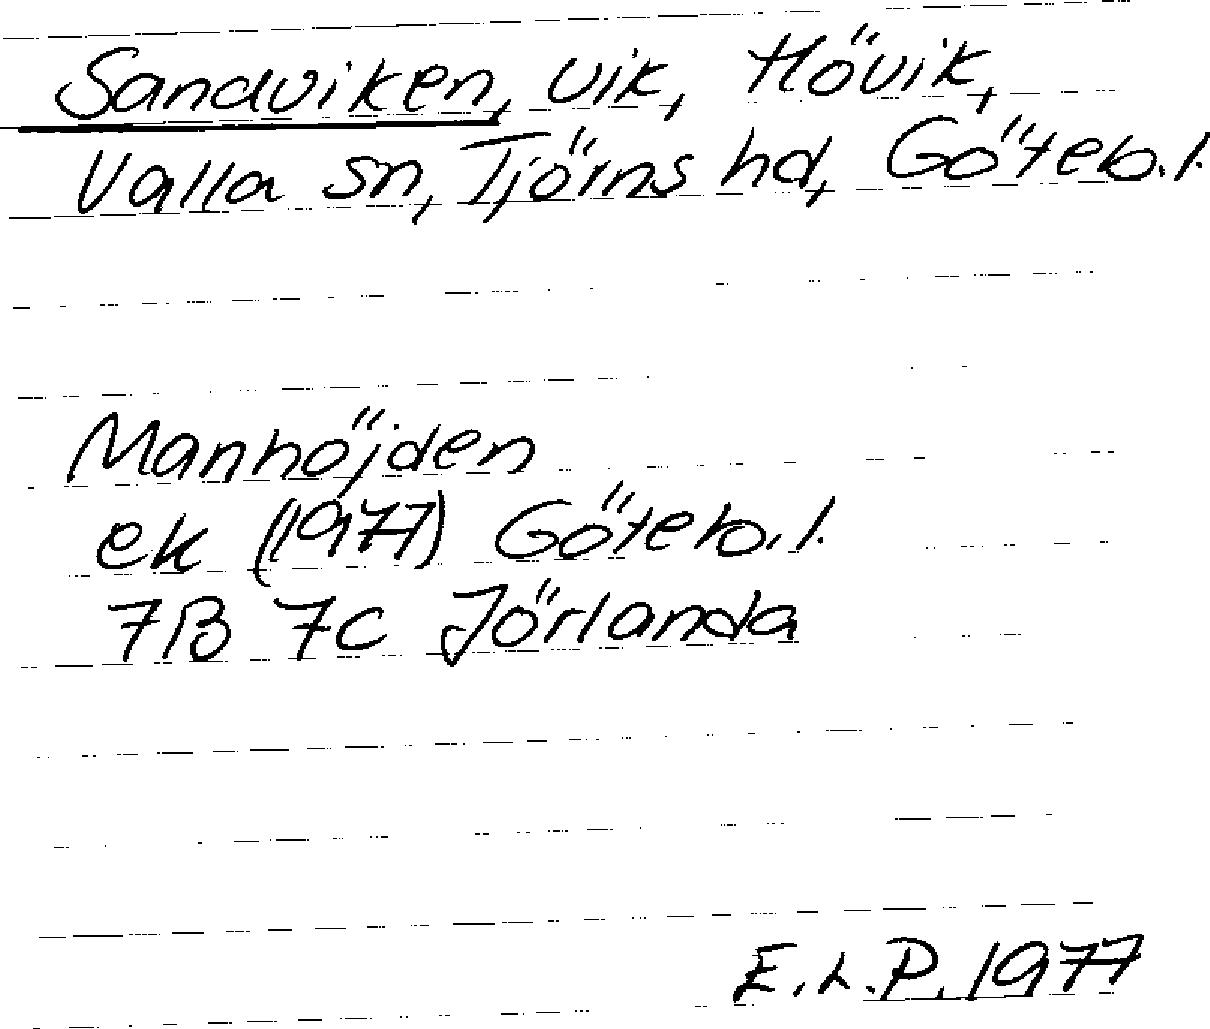 Sandviken, vik, Hövik,
Valla sn, Tjörns hd, Göteb.l.
Manhöjden
ek (1977) Göteb.l.
7B 7C Jörlanda
E.L.P. 1977